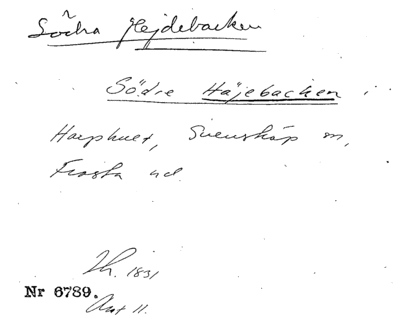 Södra Hejdebacken
Södre Häjebacken
Harphult, Svensköp sn,
Frosta hd.
Th. 1831
Nr 6789.
Akt 11.